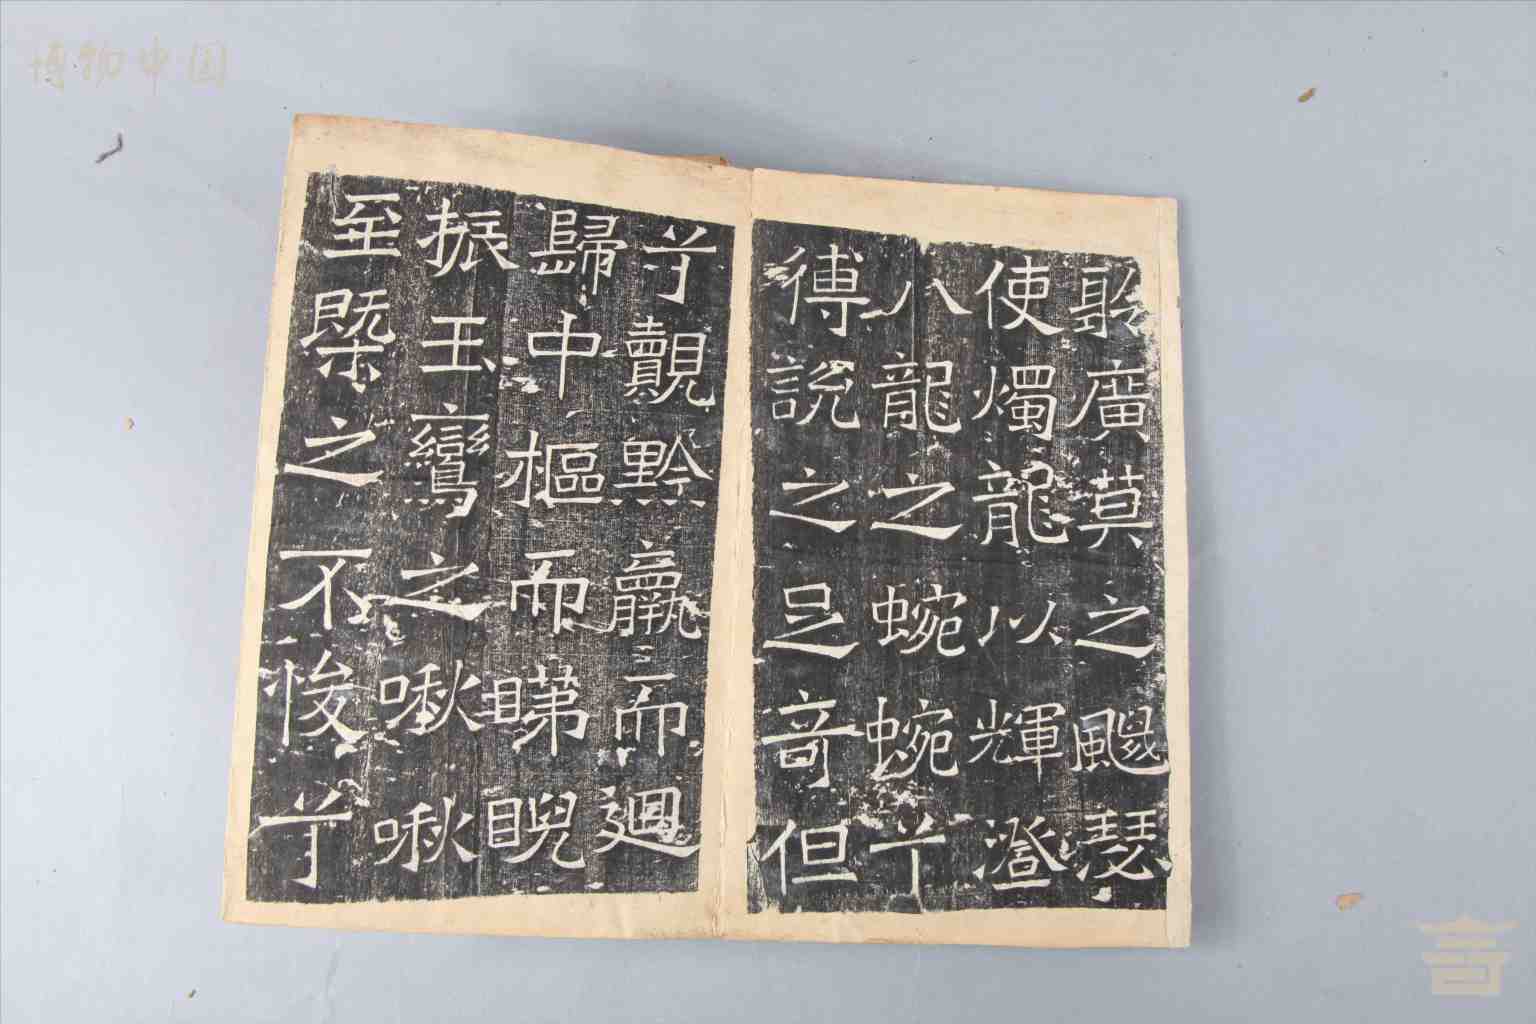 博物中国
聆廣莫之瑟
使燭龍以輝澄
八龍之蜿蜿兮
傅說之足奇但
兮覿黔羸而廻
歸中樞而睇睨
振玉鸞之啾啾
至槩之不悛兮